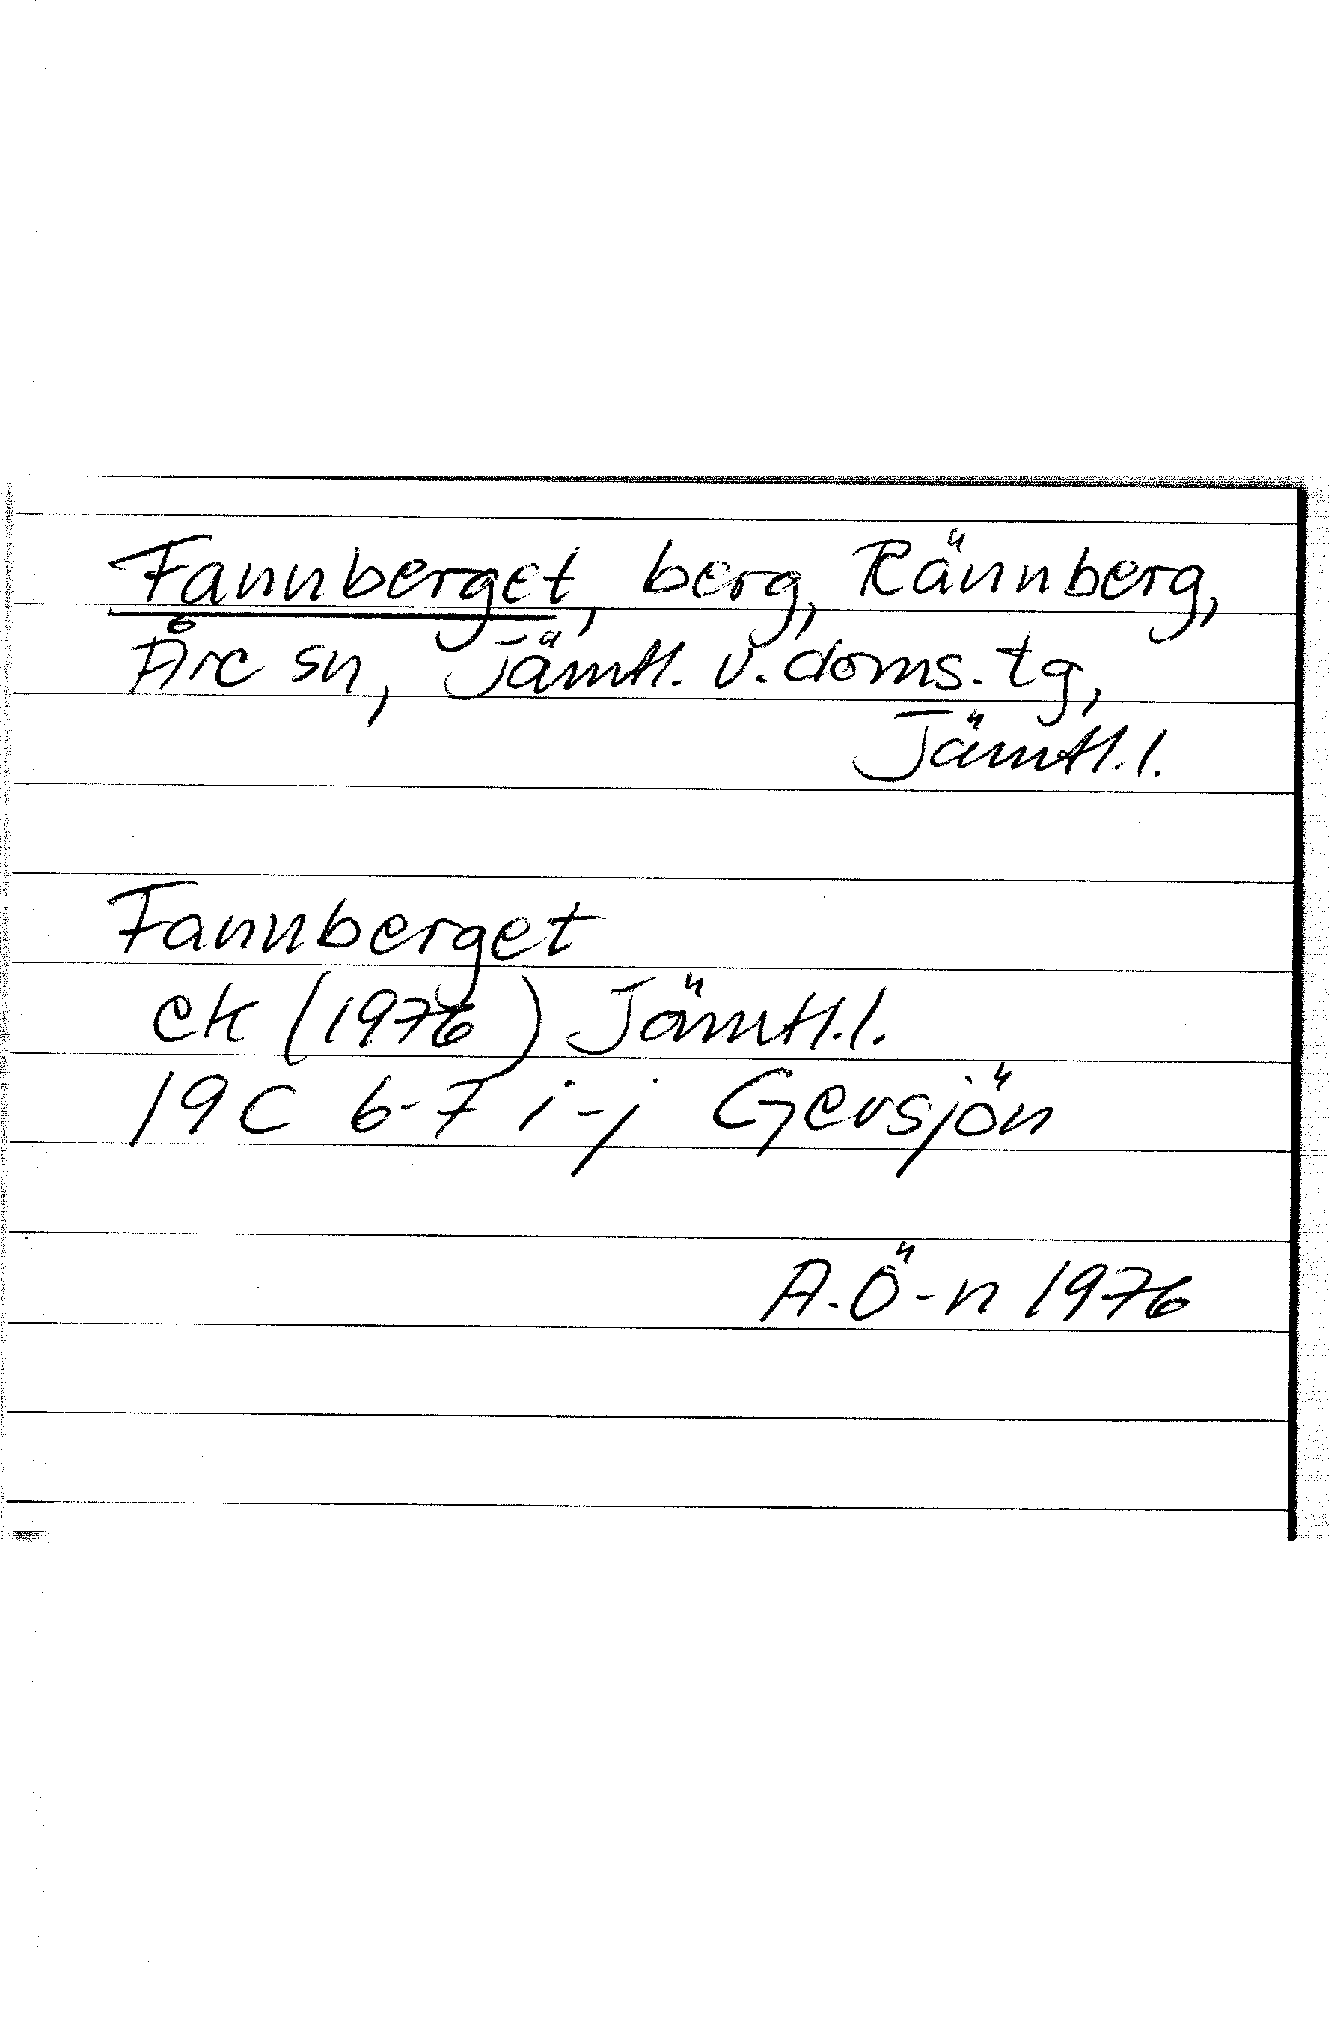 Fannberget, berg, Rännberg,
Åre sn, Jämtl. v. doms. tg,
Jämtl. l.
Fannberget
ek (1976) Jämtl. l.
19C 6-7 i-j Gevsjön
A. Ö-n 1976